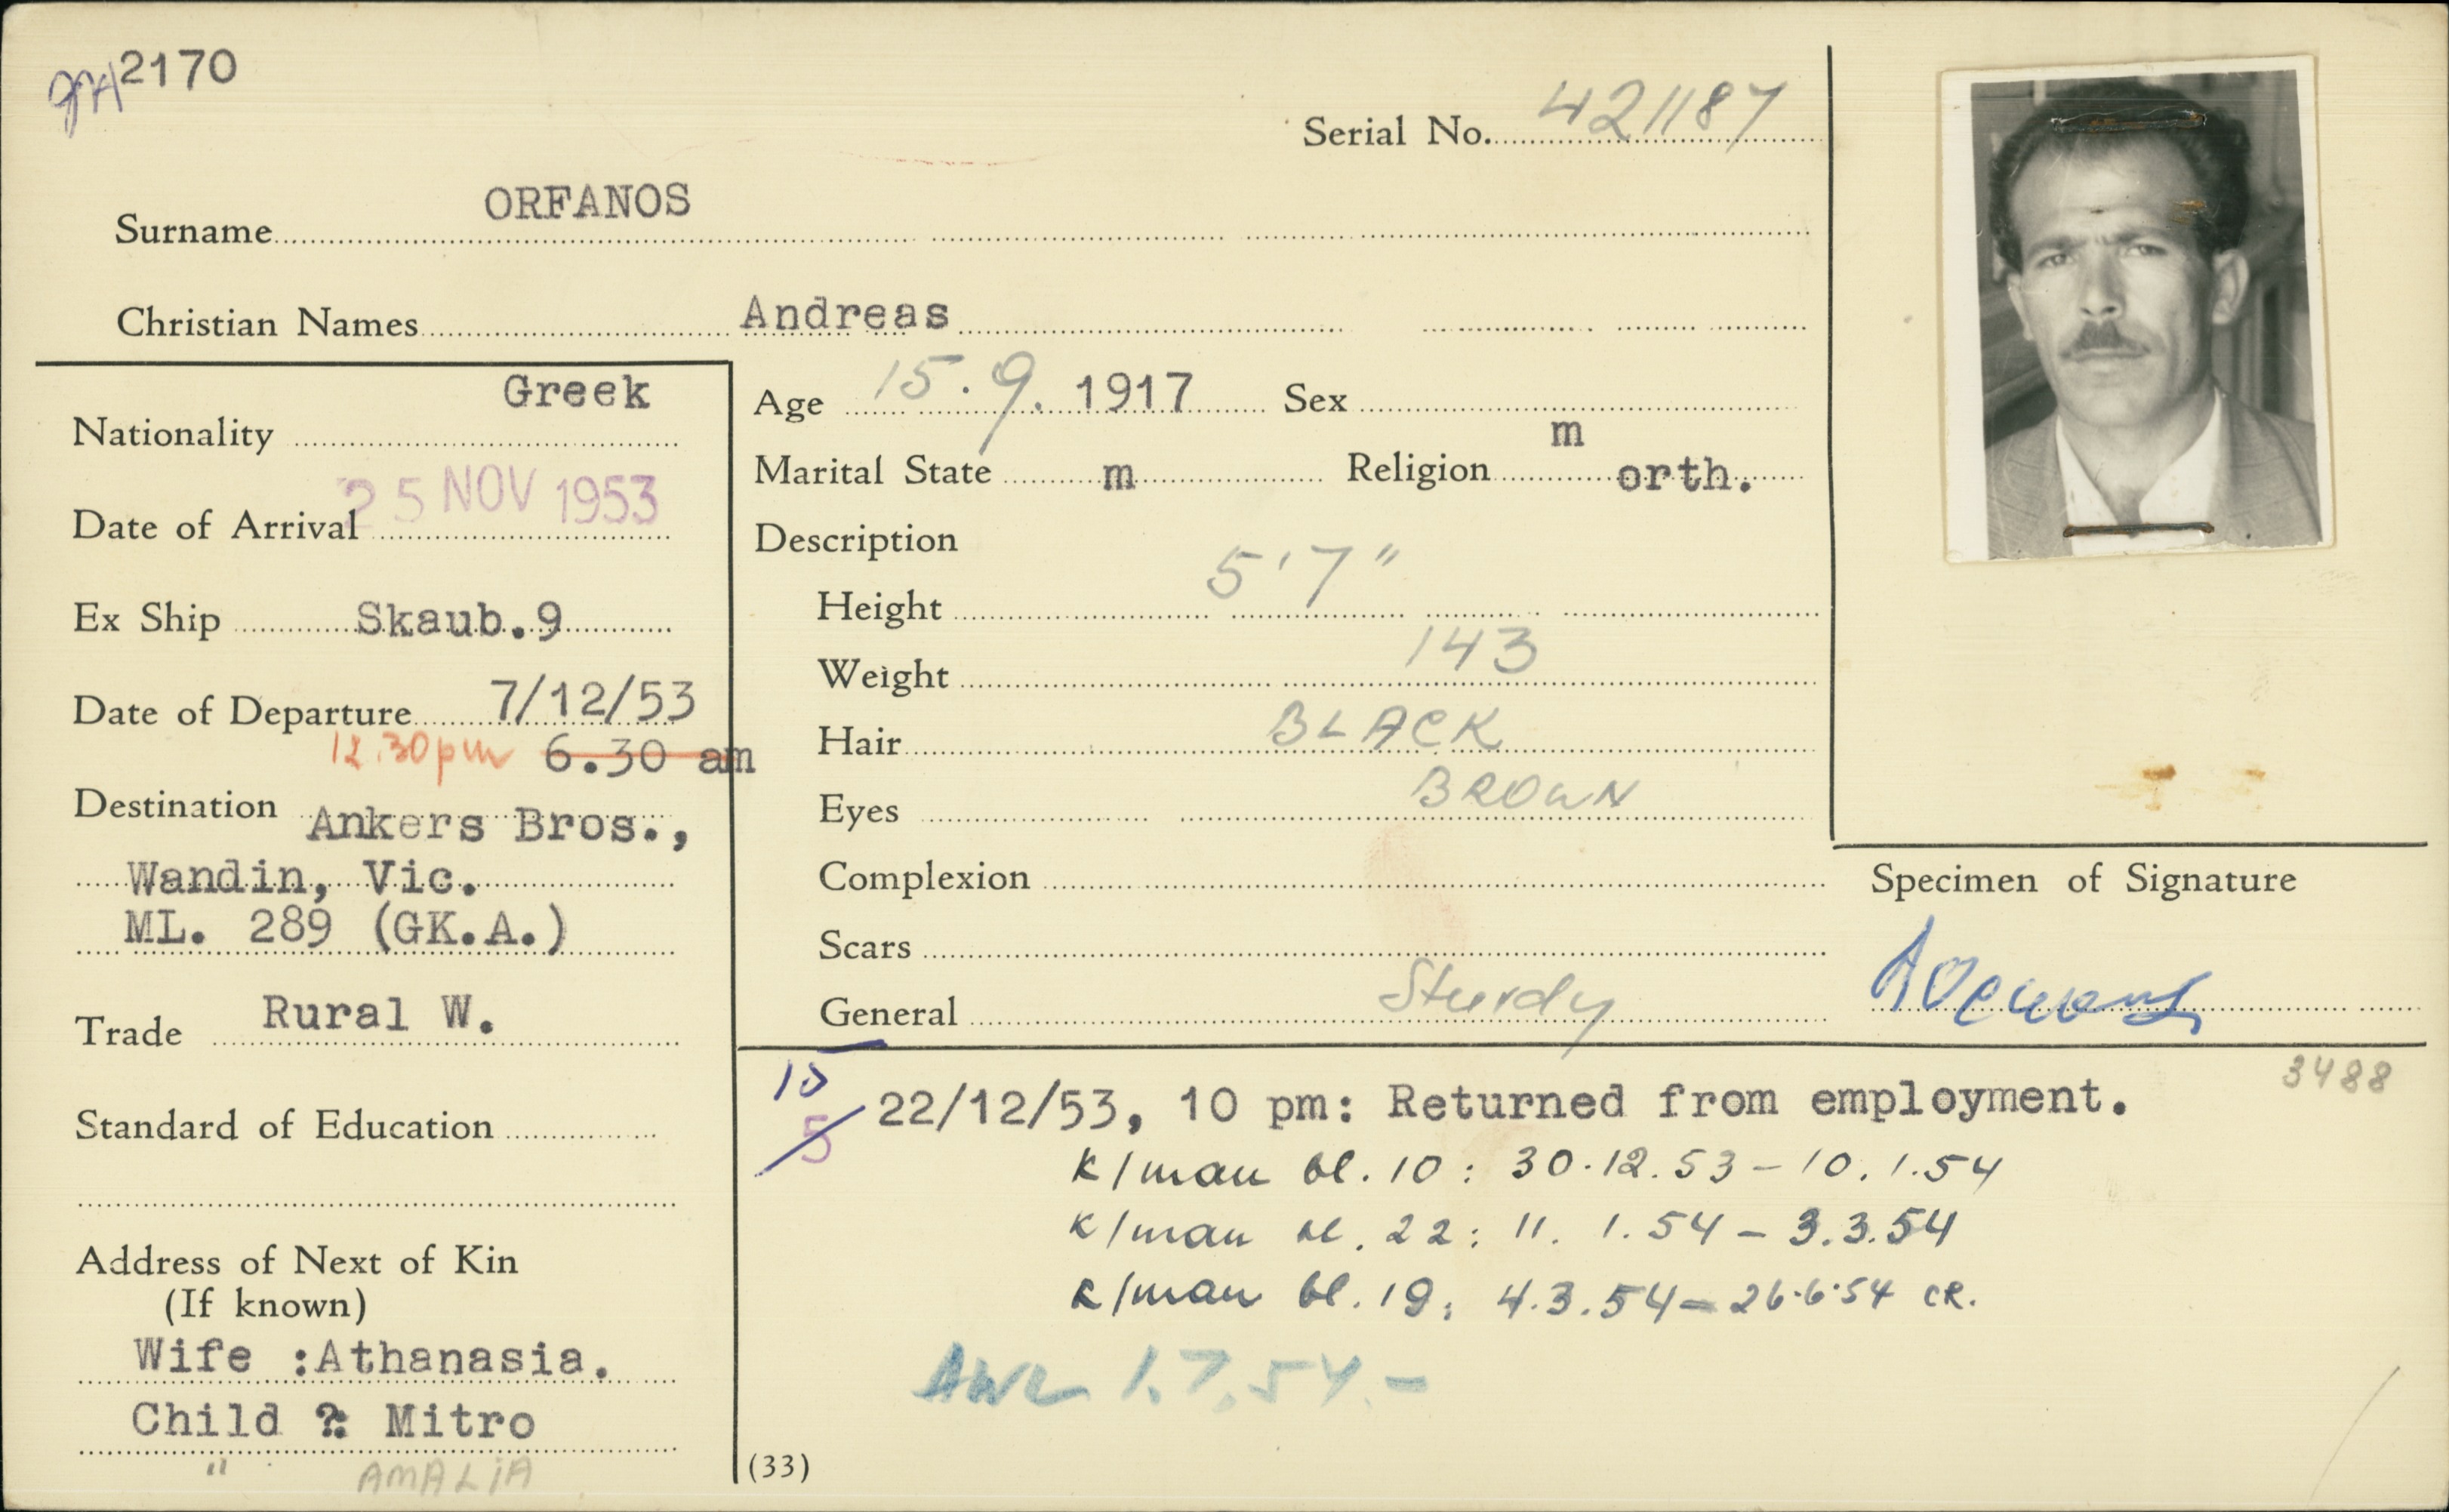 2170
Serial No. 421187
Surname ORFANOS
Christian Names Andreas
Nationality Greek
Date of Arrival 25 NOV 1953
Ex Ship Skaub.9
Date of Departure 7/12/53
12.30pm 6.30 am
Destination Ankers Bros.,
Wandin, Vic.
ML. 289 (GK.A.)
Trade Rural W.
Standard of Education
Address of Next of Kin
(If known)
Wife :Athanasia.
Child ?: Mitro
" AMALiA
Age 15.9.1917 Sex m
Marital State m Religion orth.
Description
Height 5'7"
Weight 143
Hair BLACK
Eyes BROWN
Complexion
Scars
General Sturdy
Specimen of Signature
3488
5
22/12/53, 10 pm: Returned from employment.
K/man bl. 10: 30.12.53 - 10.1.54
K/man bl. 22: 11. 1.54 - 3.3.54
K/man bl. 19: 4.3.54 - 26.6.54 CR.
AWL 1.7.54.-
(33)